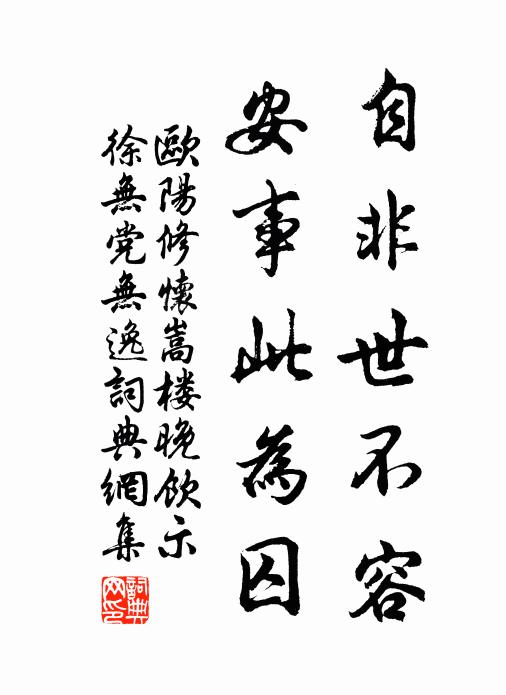 自非世不容
安事此為囚
歐陽修懷嵩楼晚飲示
徐無党無逸詞典網集